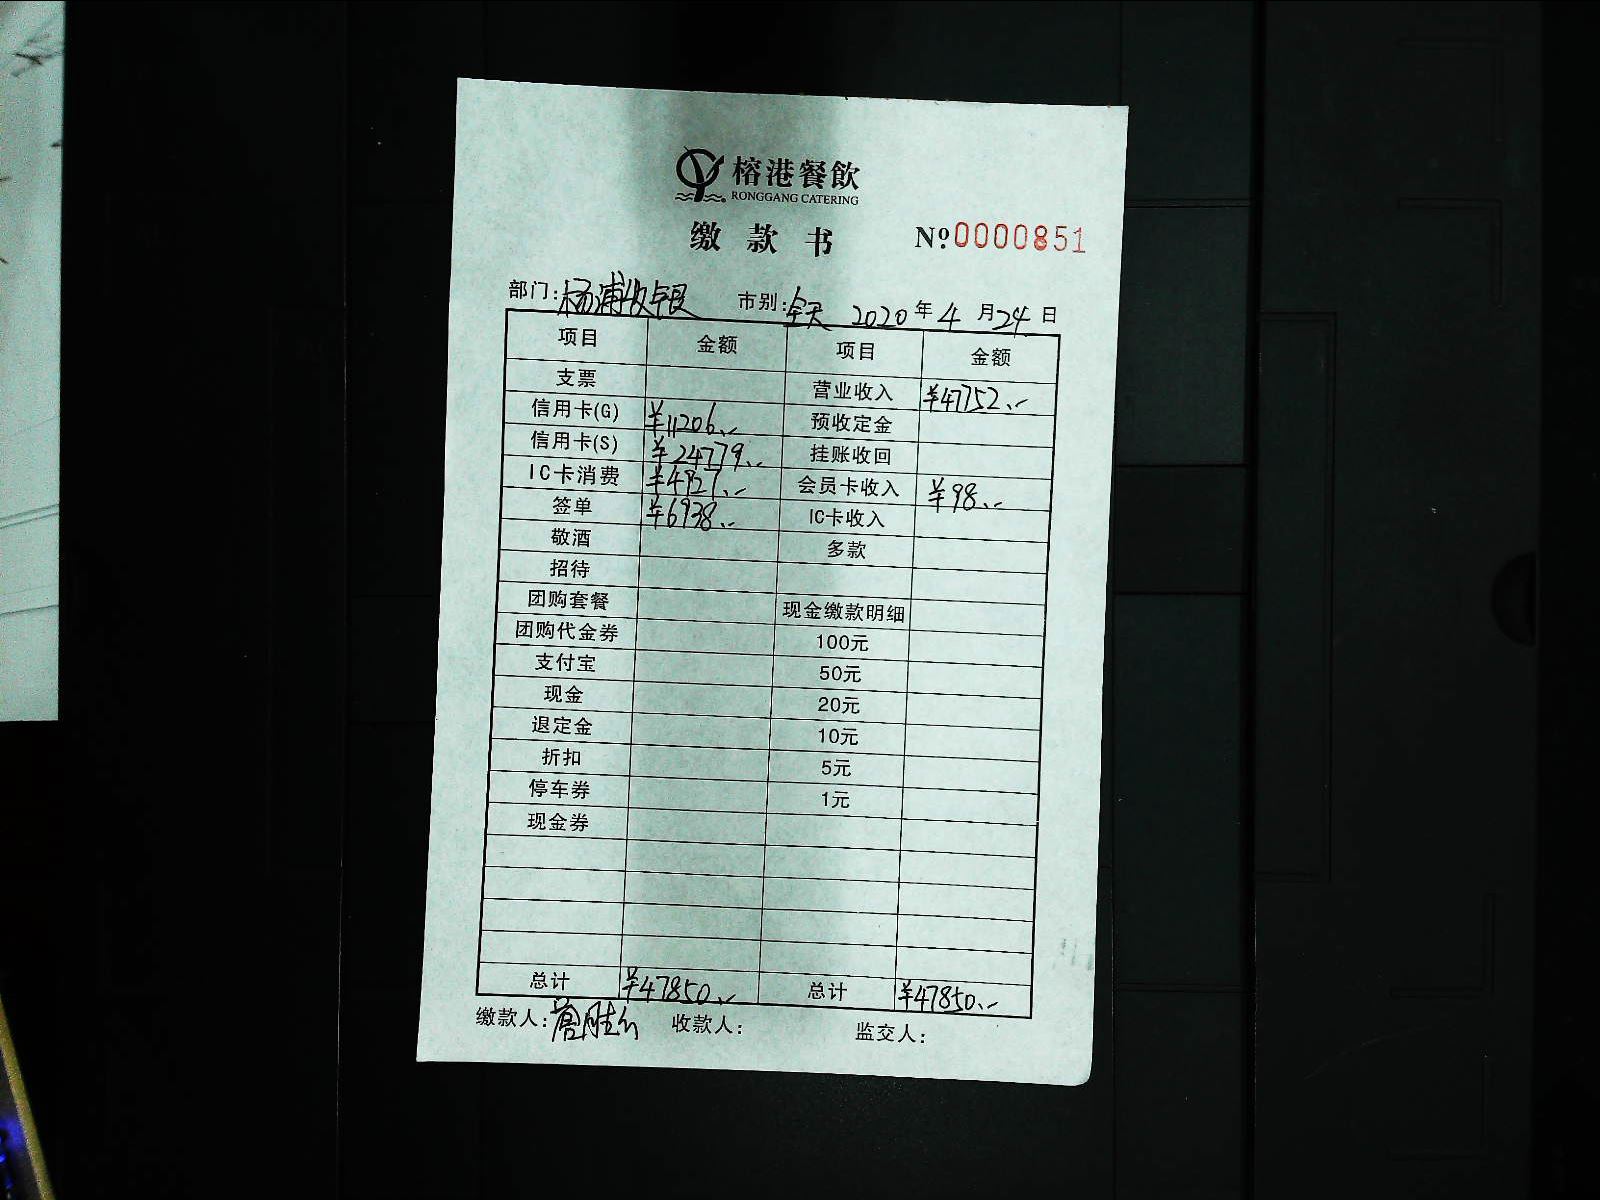 榕港餐飲
RONGGANG CATERING
缴款书 Nº0000851
部门:杨浦收银 市别:全天 2020年4月24日
项目 金额 项目 金额
支票 营业收入 ¥47752.-
信用卡(G) ¥11206.- 预收定金
信用卡(S) ¥24779.- 挂账收回
IC卡消费 ¥4927.- 会员卡收入 ¥98.-
签单 ¥6938.- IC卡收入
敬酒 多款
招待
团购套餐 现金缴款明细
团购代金券 100元
支付宝 50元
现金 20元
退定金 10元
折扣 5元
停车券 1元
现金券
总计 ¥47850.- 总计 ¥47850.-
缴款人: 收款人: 监交人: